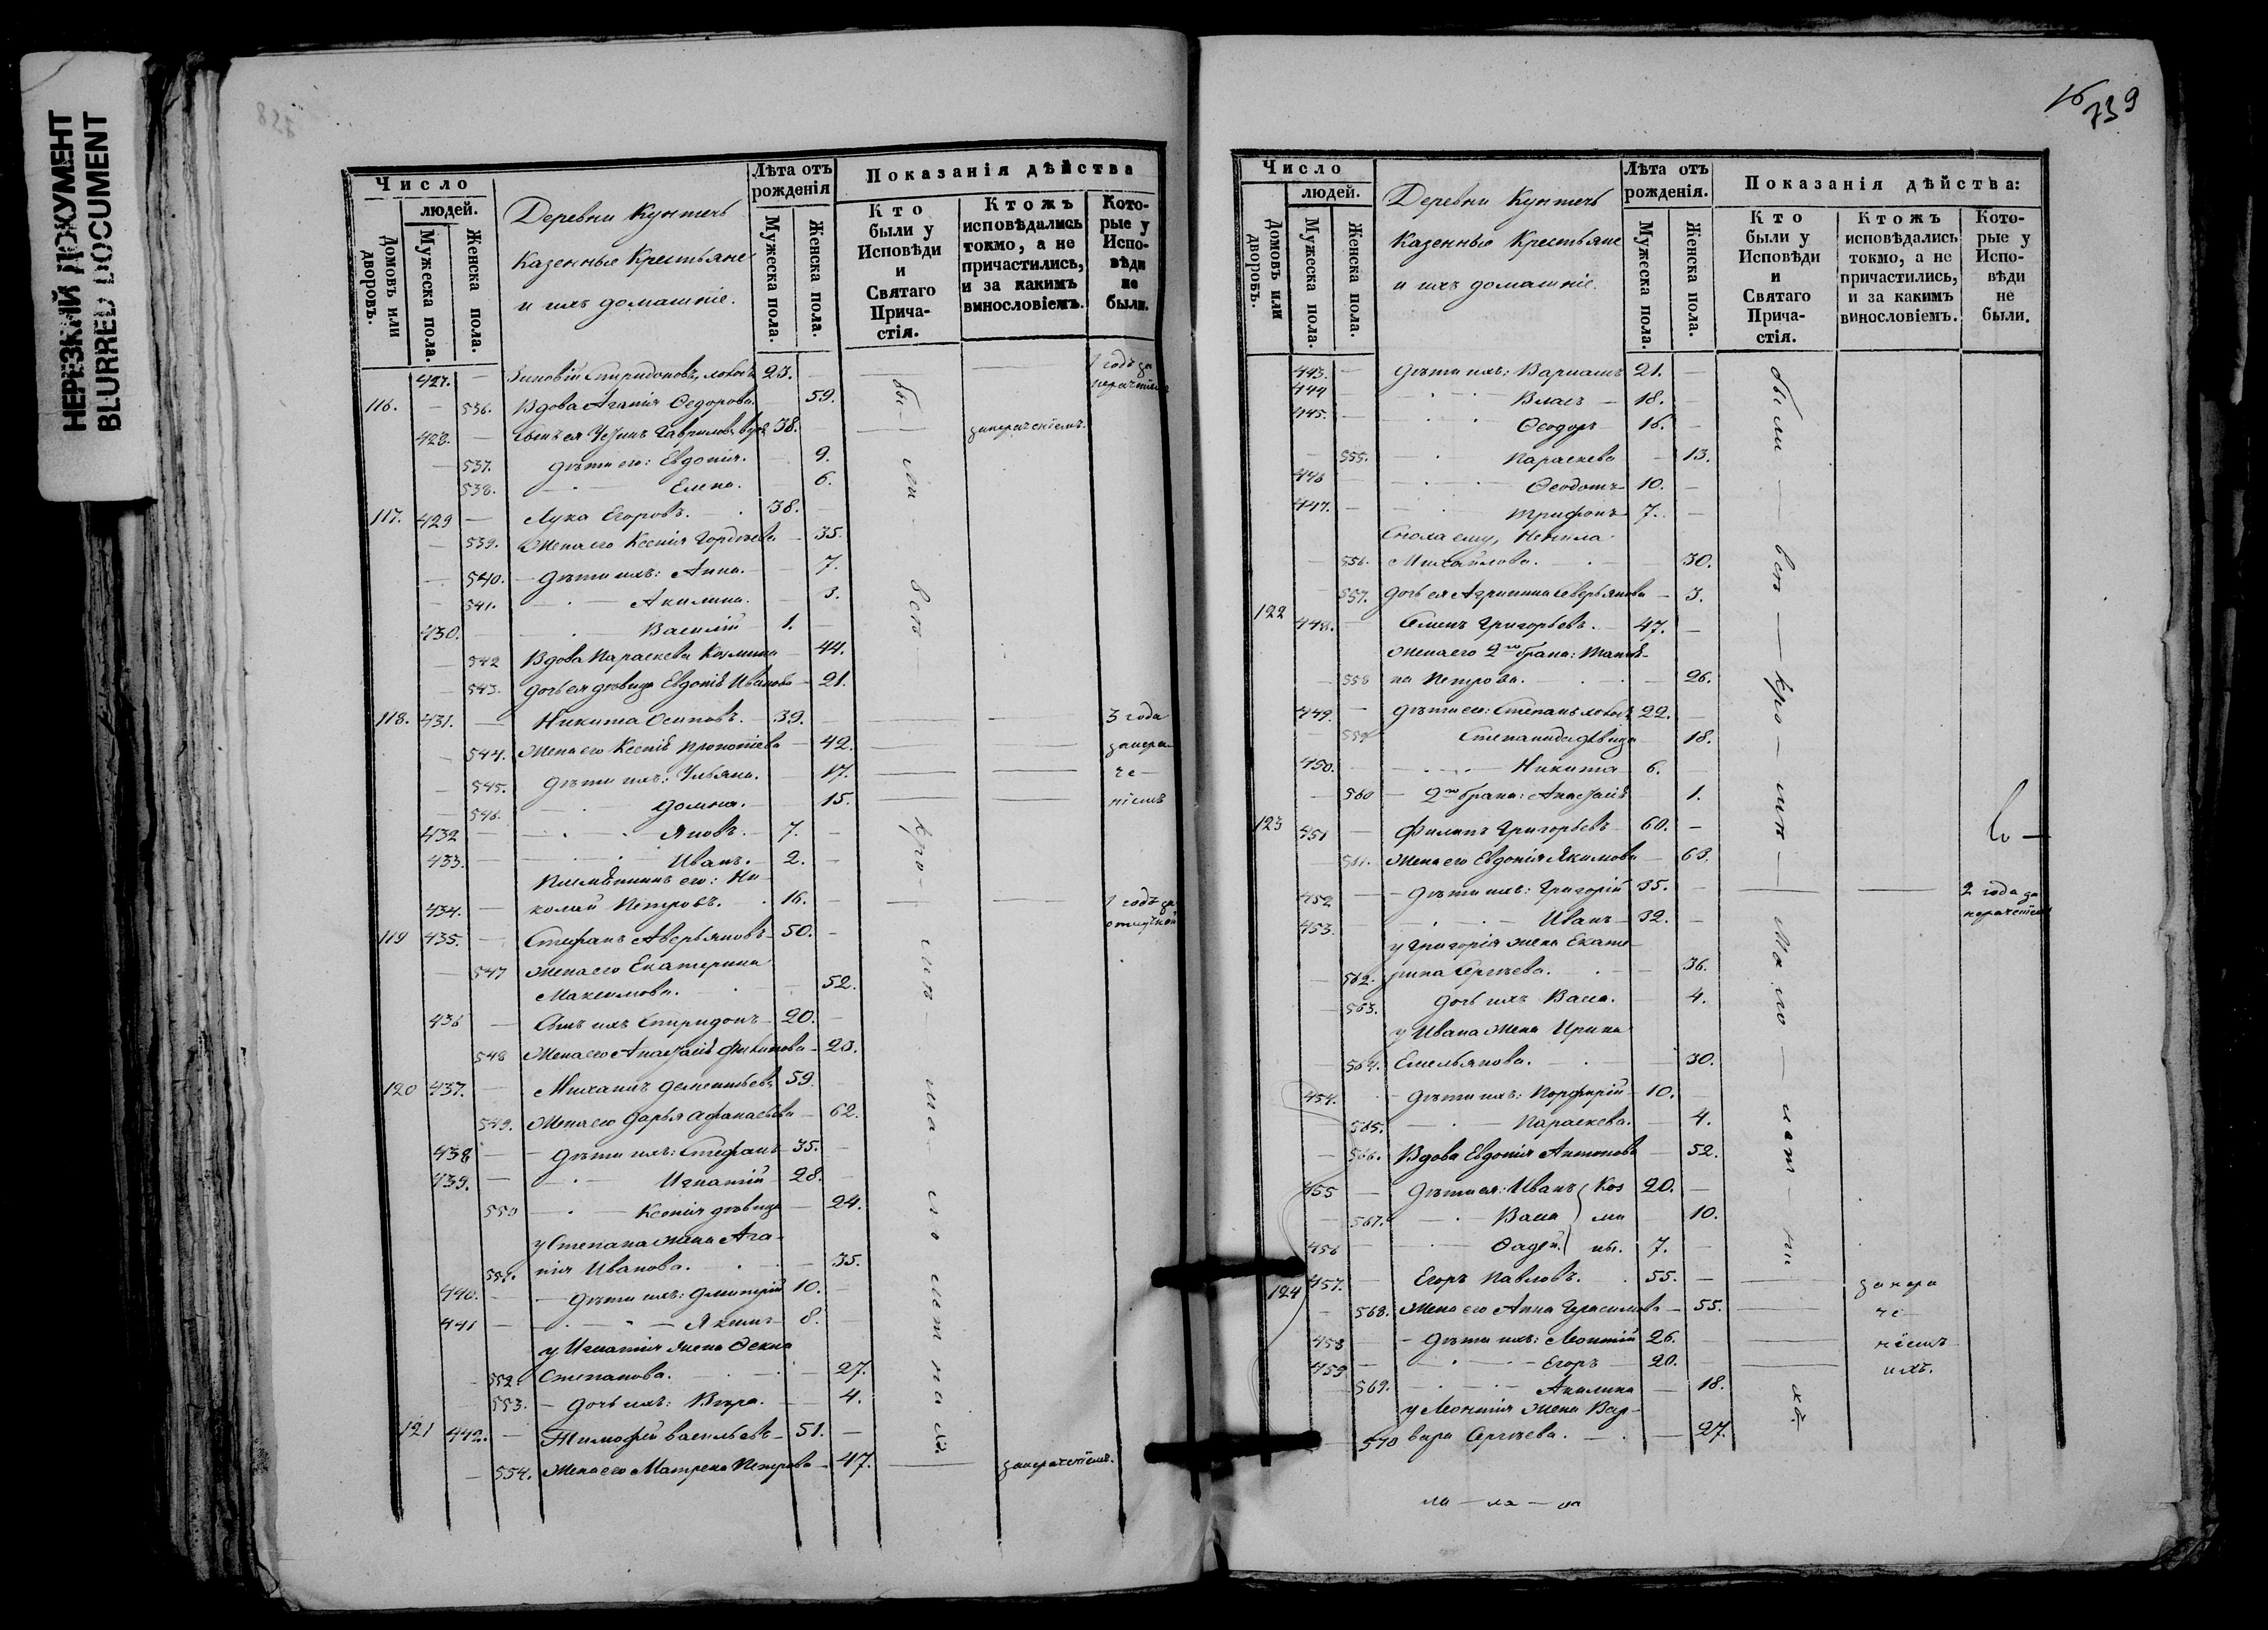 НЕРЕЗКИЙ ДОКУМЕНТ
BLURRED DOCUMENT
Число
людей.
Домовъ или дворовъ.
Мужеска пола.
Женска пола.
Деревни Кунтечь
Казенные Крестьяне
и ихъ домашніе.
Лѣта отъ рожденія
Мужеска пола.
Женска пола.
Показанія дѣйства
Кто были у Исповѣди и Святаго Прича-стія.
Ктожъ исповѣдались токмо, а не причастились, и за какимъ винословіемъ.
Кото-рые у Испо-вѣди не были.
427. — Зиновій Спиридоновъ, холостъ 23. 1 годъ за нераченіемъ
116. — 536. Вдова Агапія Ѳедорова. 59.
428. — Сынъ ея Устинъ Гавриловъ 38. — за нераченіемъ.
— 537. Дѣти его: Евдокія. 9.
538. Елена. 6.
117. 429 — Лука Егоровъ. 38.
— 539. Жена его Ксенія Гордѣева 35.
540. Дѣти ихъ: Анна. 7.
— 541. Акилина. 3.
430. Василій 1.
— 542 Вдова Параскева Козмина 44.
— 543. Дочь ея дѣвица Евдокія Иванова 21.
118. 431. — Никита Осиповъ. 39. 3 года
— 544. Жена его Ксенія Прокопіева 42. за нера-
— 545. Дѣти ихъ: Ульяна. 17. че-
546. Домна. 15. ніемъ
432 — Яковъ. 7.
433. Иванъ. 2.
Племянникъ его: Ни-
434. — колай Петровъ. 16. 1 годъ за отлучкой
119 435. — Стефанъ Аверьяновъ 50.
— 547 Жена его Екатерина
Максимова. 52.
436 — Сынъ ихъ Спиридонъ 20.
548 Жена его Анастасія Филипова 23.
120 437. — Михаилъ Дементьевъ 59.
549. Жена его Дарья Афанасьева 62.
438 — Дѣти ихъ: Стефанъ 35.
439. — Игнатій 28.
550 Ксенія дѣвица 24.
у Степана жена Ага-
551. пія Иванова. 35.
440. Дѣти ихъ: Дмитрій 10.
441 — Якимъ 8.
у Игнатія жена Ѳекла
552. Степанова. 27.
553. — Дочь ихъ: Вѣра. 4.
121 442. — Тимофей Васильевъ 51. —
— 554. Жена его Матрена Петрова 47. — за нераченіемъ.
бы — ли — всѣ — кро — мѣ — ма — ло — лет — ны — хъ
739
Число
людей.
Домовъ или дворовъ.
Мужеска пола.
Женска пола.
Деревни Кунтечь
Казенные Крестьяне
и ихъ домашніе.
Лѣта отъ рожденія.
Мужеска пола.
Женска пола.
Показанія дѣйства:
Кто были у Исповѣди и Святаго Прича-стія.
Ктожъ исповѣдались токмо, а не причастились, и за какимъ винословіемъ.
Кото-рые у Испо-вѣди не были.
443. — Дѣти ихъ: Варлаамъ 21. —
444 Власъ — 18. —
445. — Ѳеодоръ 16. —
— 555. Параскева — 13.
446 Ѳеодотъ 10. —
447. — Трифонъ 7. —
Сноха ему, Ненила
— 556. Михайлова. 30.
557. Дочь ея Агрипина Северьянова — 3.
122 448. — Семенъ Григорьевъ. 47. —
Жена его 2го брака: Татья-
— 558 на Петрова. 26.
449. — Дѣти его: Степанъ холостъ 22. —
559 Степанида дѣвица 18.
450. Никита 6.
— 560 — 2го брака: Анастасія 1.
123 451 — Филипъ Григорьевъ 60. —
561. Жена его Евдокія Якимова 63.
452 — Дѣти ихъ: Григорій 35. — 2 года за нераченіемъ
453. Иванъ 32. —
у Григорія жена Екате-
— 562. рина Сергѣева. 36.
— 563. Дочь ихъ Васса. 4.
у Ивана жена Ирина
— 564. Емельянова. 30.
454. — Дѣти ихъ: Порфирій 10. —
565. Параскева. 4.
— 566. Вдова Евдокія Антонова 52.
455 — Дѣти ея: Иванъ Коз 20. —
— 567. Васса ми 10.
456 Фадей. ны. 7. —
124 457. — Егоръ Павловъ. 55. — за нера
— 568. Жена его Анна Герасимова 55. че
458 — Дѣти ихъ: Леонтій 26. ніемъ
459 — Егоръ 20. ихъ.
569. Акилина — 18.
у Леонтія жена Вар-
570 вара Сергѣева. 27.
были — всѣ — кро — мѣ — мало — лет — ны хъ.